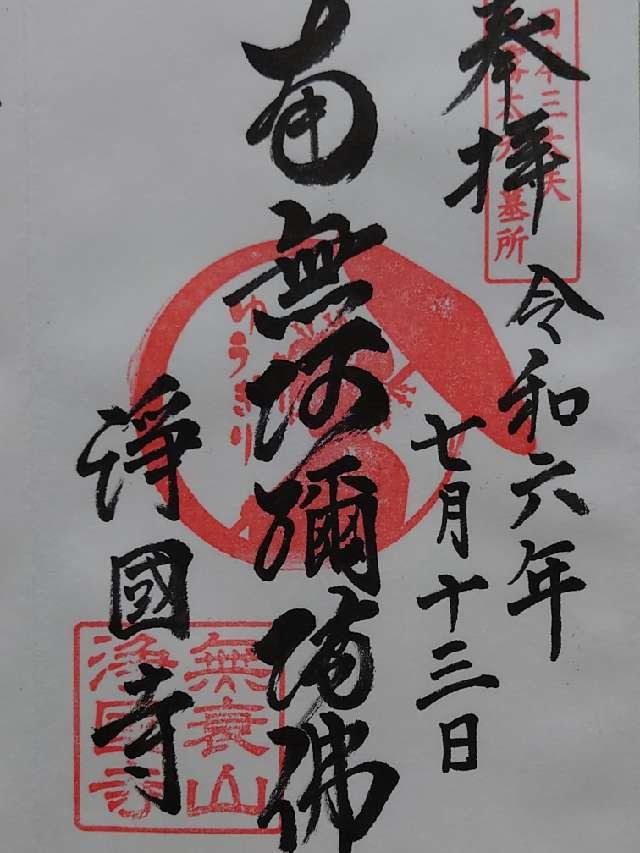 奉拝
令和六年
七月十三日
南無阿彌陀佛
淨國寺
ゆうぎり
墓所
無衰山
淨國寺